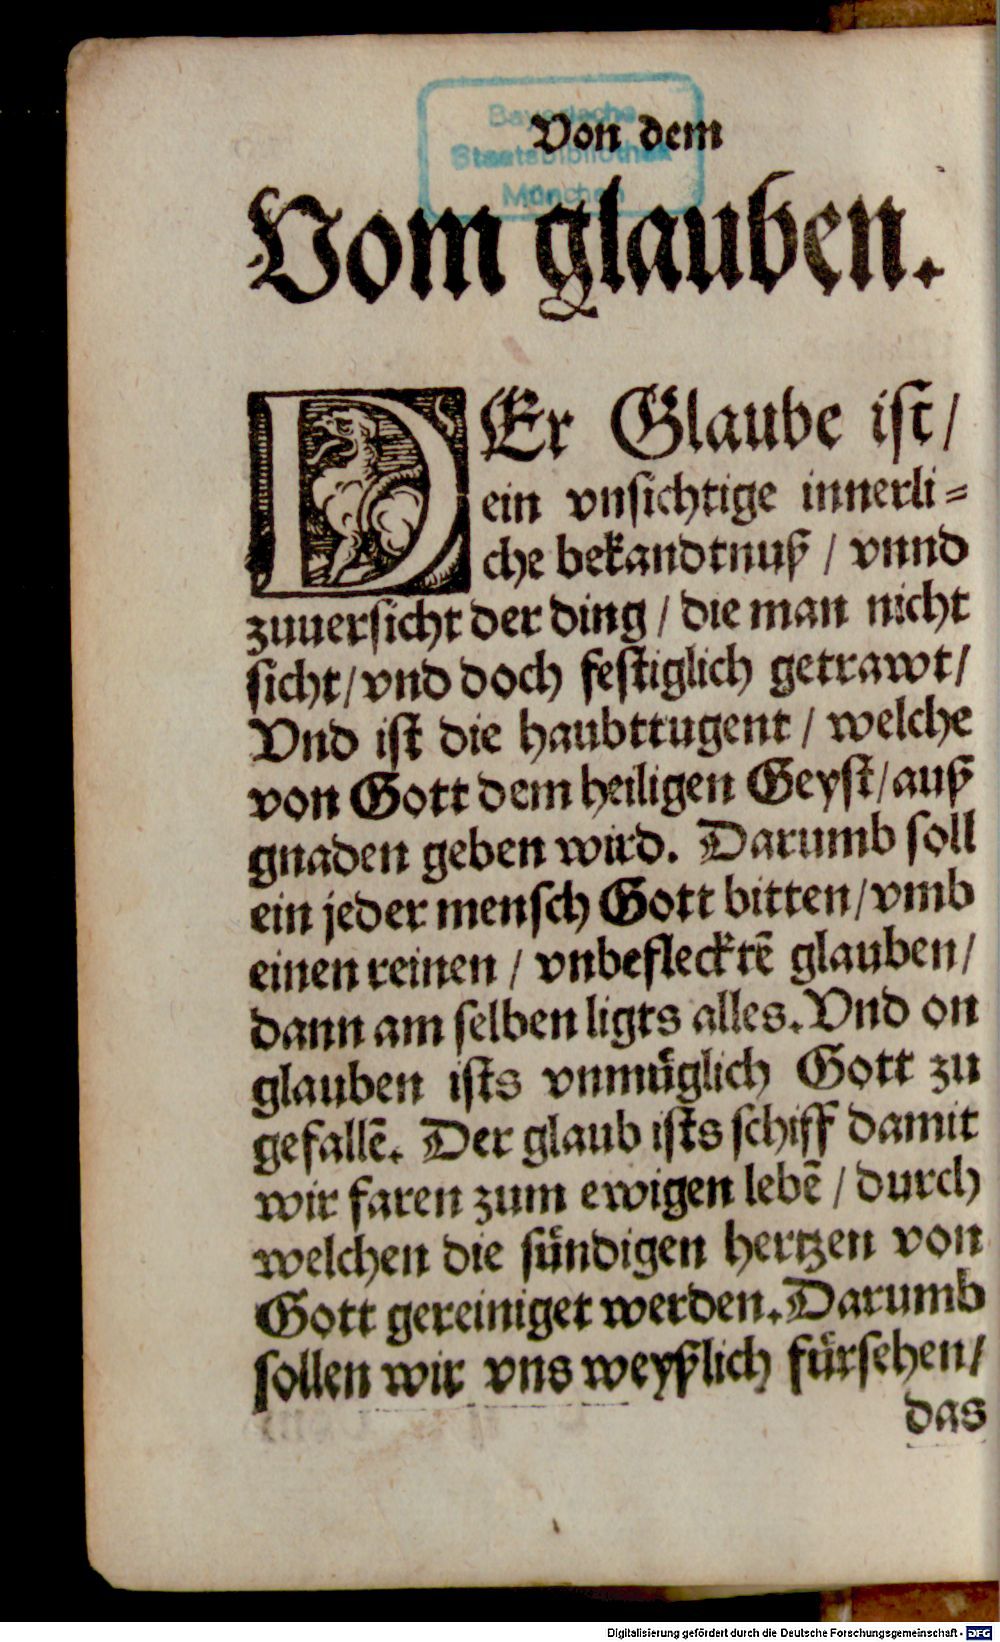 Bayerische
Staatsbibliothek
München
Von dem
Vom glauben.
DEr Glaube ist/
ein vnsichtige innerli=
che bekandtnuß / vnnd
zuuersicht der ding / die man nicht
sicht / vnd doch festiglich getrawt /
Vnd ist die haubttugent / welche
von Gott dem heiligen Geyst / auß
gnaden geben wird. Darumb soll
ein jeder mensch Gott bitten / vmb
einen reinen / vnbeflecktẽ glauben /
dann am selben ligts alles. Vnd on
glauben ists vnmüglich Gott zu
gefallẽ. Der glaub ists schiff damit
wir faren zum ewigen lebẽ / durch
welchen die sündigen hertzen von
Gott gereiniget werden. Darumb
sollen wir vns weyßlich fürsehen /
das
Digitalisierung gefördert durch die Deutsche Forschungsgemeinschaft - DFG